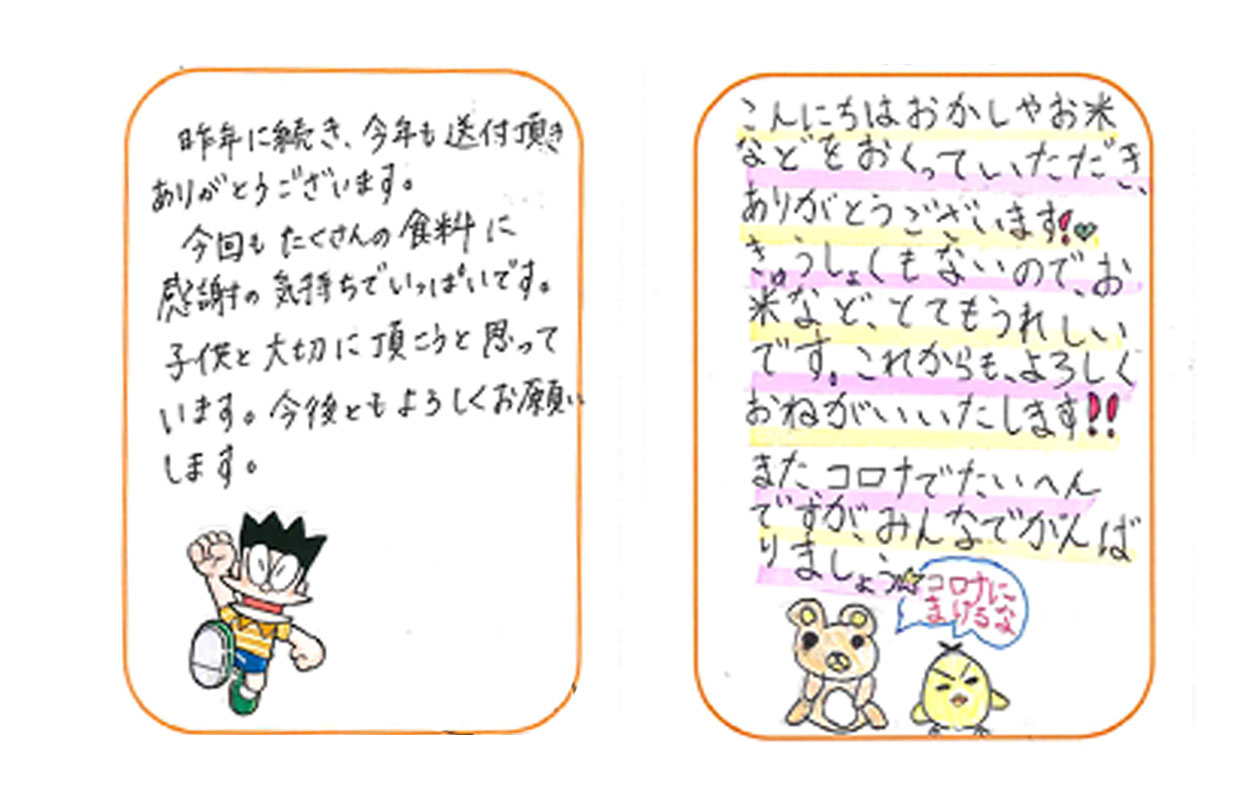 昨年に続き、今年も送付頂き
ありがとうございます。
今回もたくさんの食料に
感謝の気持ちでいっぱいです。
子供と大切に頂こうと思って
います。今後ともよろしくお願い
します。
こんにちはおかしやお米
などをおくっていただき、
ありがとうございます!♡
きゅうしょくもないので、お
米など、とてもうれしい
です。これからも、よろしく
おねがいいたします!!
また、コロナでたいへん
ですが、みんなでがんば
りましょう☆
コロナに
まけるな